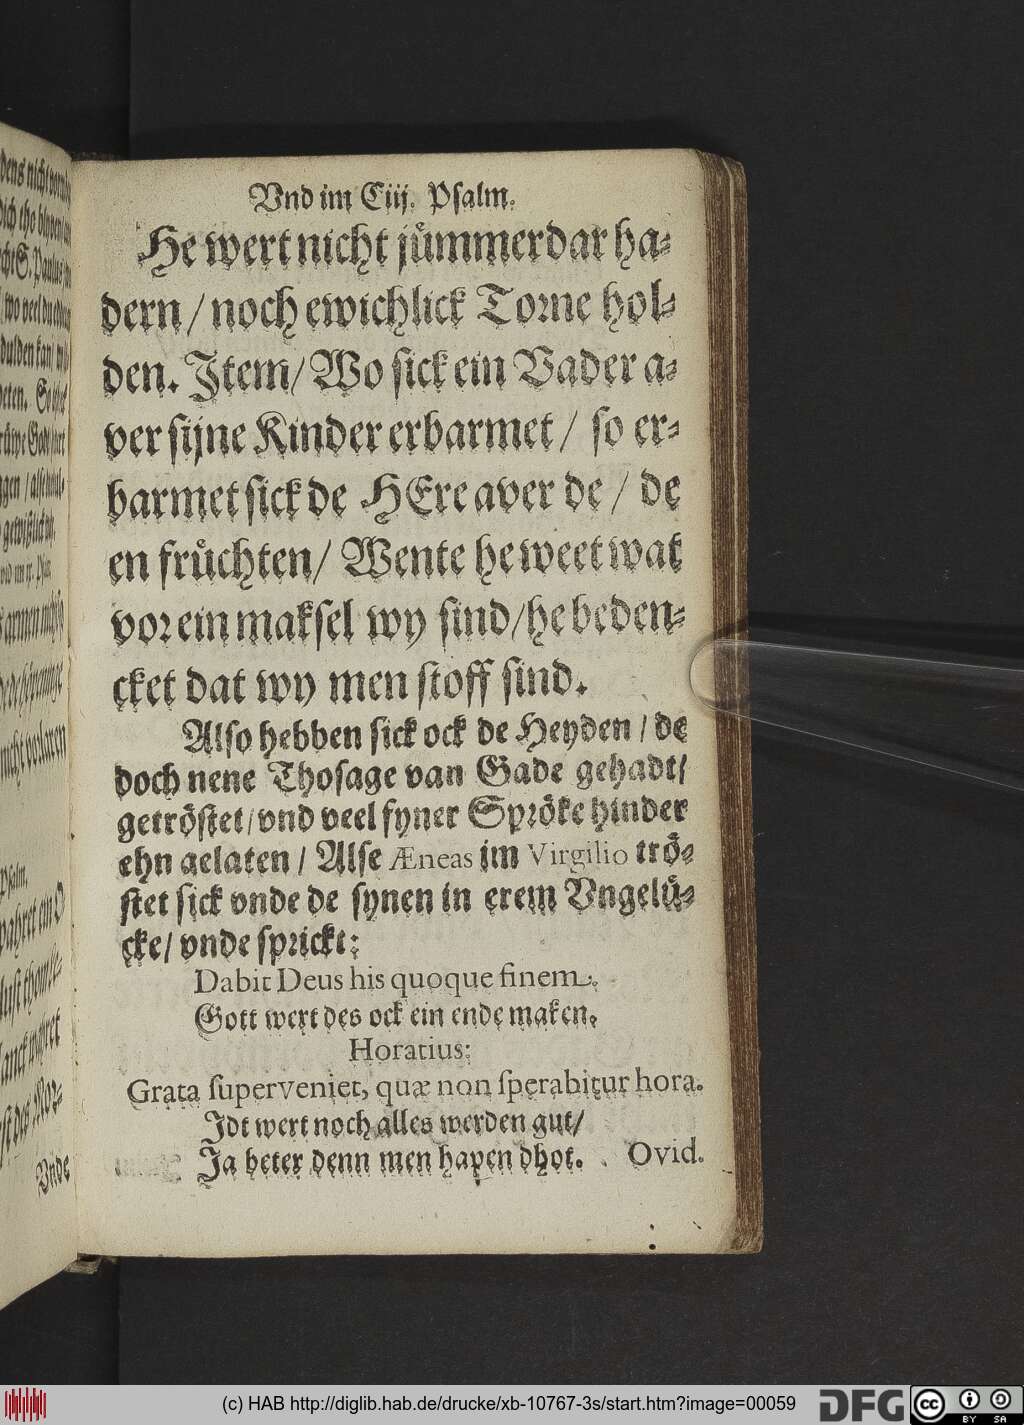 Vnd im Ciij. Psalm.
He wert nicht jümmerdar ha-
dern / noch ewichlick Torne hol-
den. Item / Wo sick ein Vader a-
ver sijne Kinder erbarmet / so er-
barmet sick de HEre aver de / de
en früchten / Wente he weet wat
vor ein maksel wy sind / he beden-
cket dat wy men stoff sind.
Also hebben sick ock de Heyden / de
doch nene Thosage van Gade gehadt /
getröstet / vnd veel fyner Spröke hinder
ehn gelaten / Alse Æneas im Virgilio trö-
stet sick vnde de synen in erem Vngelü-
cke / vnde sprickt:
Dabit Deus his quoque finem.
Gott wert des ock ein ende maken.
Horatius:
Grata superveniet, quæ non sperabitur hora.
Idt wert noch alles werden gut /
Ja beter denn men hapen dhot. Ovid.
Vnde
(c) HAB http://diglib.hab.de/drucke/xb-10767-3s/start.htm?image=00059
DFG
cc
BY SA